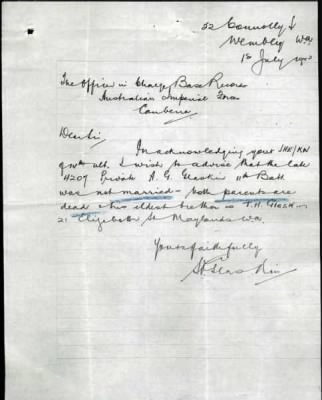 52 Connolly St
Wembley W.A.
15 July
The Officer in Charge Base Records
Australian Imperial Force
Canberra
Dear Sir
In acknowledging your
ult. I wish to advise that the late
4207 Private A. G. 11th Batt
was not married - both parents are
dead eldest brother is T. H.
21 Elizabeth St Maylands W.A.
Yours faithfully